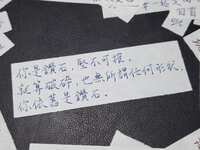 你是鑽石，堅不可摧，
就算破碎，也無所謂任何形狀，
你依舊是鑽石。